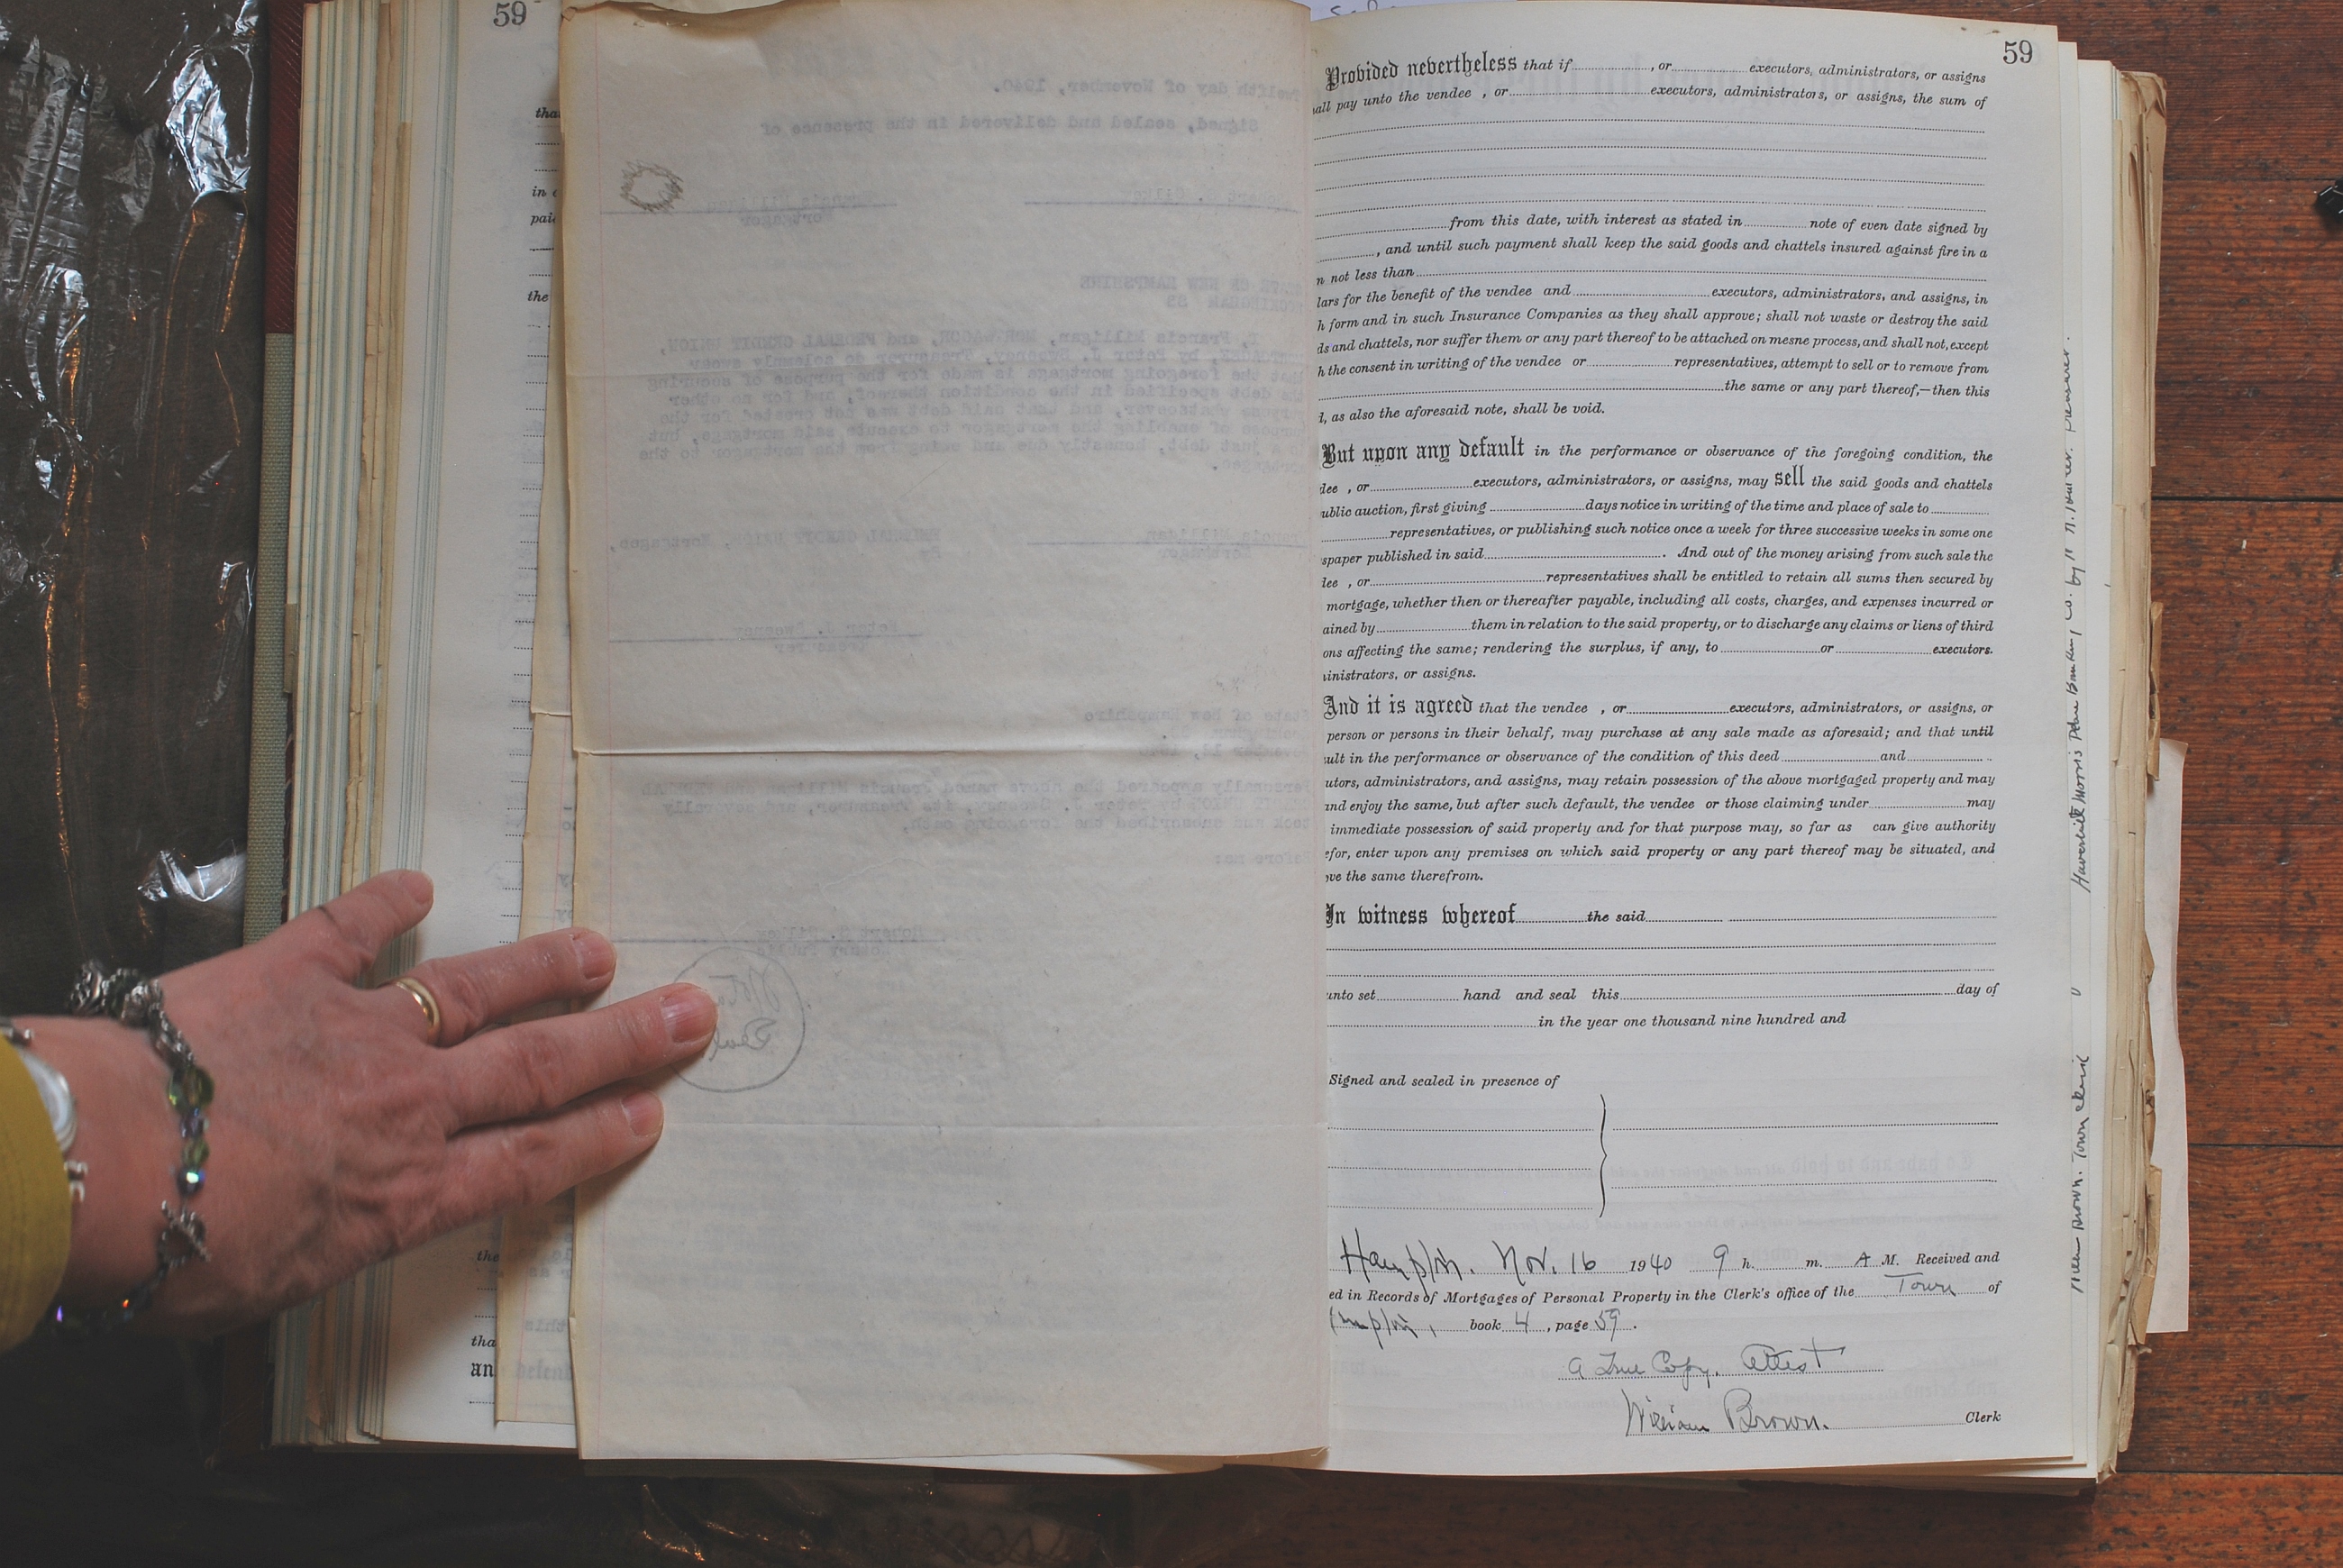 59
59
tha
in
pai
the
the
tha
an
Twelfth day of November, 1940.
Signed, sealed and delivered in the presence of
Francis Milligan
Mortgagor
STATE OF NEW HAMPSHIRE
ROCKINGHAM SS
I, Francis Milligan, MORTGAGOR, and FEDERAL CREDIT UNION,
by Peter J. Sweeney, Treasurer do solemnly swear
that the foregoing mortgage is made for the purpose of securing
the debt specified in the condition thereof, and for no other
purpose whatsoever, and that said debt was not created for the
purpose of enabling the mortgagor to execute said mortgage, but
is a just debt, honestly due and owing from the mortgagor to the
mortgagee.
Francis Milligan
Mortgagor
FEDERAL CREDIT UNION, Mortgagee,
By
Peter J. Sweeney
Treasurer
State of New Hampshire
Rockingham
November 12, 1940
Personally appeared the above named Francis Milligan and FEDERAL
by Peter J. Sweeney, its Treasurer, and severally
took and subscribed the foregoing oath,
Before me:
Robert S.
Notary Public
Seal
Provided nevertheless that if , or executors, administrators, or assigns
all pay unto the vendee , or executors, administrators, or assigns, the sum of
from this date, with interest as stated in note of even date signed by
, and until such payment shall keep the said goods and chattels insured against fire in a
n not less than
lars for the benefit of the vendee and executors, administrators, and assigns, in
h form and in such Insurance Companies as they shall approve; shall not waste or destroy the said
ds and chattels, nor suffer them or any part thereof to be attached on mesne process, and shall not, except
h the consent in writing of the vendee or representatives, attempt to sell or to remove from
the same or any part thereof,—then this
d, as also the aforesaid note, shall be void.
But upon any default in the performance or observance of the foregoing condition, the
dee , or executors, administrators, or assigns, may sell the said goods and chattels
ublic auction, first giving days notice in writing of the time and place of sale to
representatives, or publishing such notice once a week for three successive weeks in some one
spaper published in said . And out of the money arising from such sale the
dee , or representatives shall be entitled to retain all sums then secured by
mortgage, whether then or thereafter payable, including all costs, charges, and expenses incurred or
ained by them in relation to the said property, or to discharge any claims or liens of third
ons affecting the same; rendering the surplus, if any, to or executors.
ministrators, or assigns.
And it is agreed that the vendee , or executors, administrators, or assigns, or
person or persons in their behalf, may purchase at any sale made as aforesaid; and that until
ult in the performance or observance of the condition of this deed and
utors, administrators, and assigns, may retain possession of the above mortgaged property and may
and enjoy the same, but after such default, the vendee or those claiming under may
immediate possession of said property and for that purpose may, so far as can give authority
efor, enter upon any premises on which said property or any part thereof may be situated, and
ove the same therefrom.
In witness whereof the said
unto set hand and seal this day of
in the year one thousand nine hundred and
Signed and sealed in presence of
Hampton. Nov. 16 1940 9 h. m. A M. Received and
ed in Records of Mortgages of Personal Property in the Clerk's office of the Town of
mpton, book 4, page 59.
A True Copy. Attest
William Brown. Clerk
Haverhill Morris Plan Banking Co. by
Brown. Town Clerk